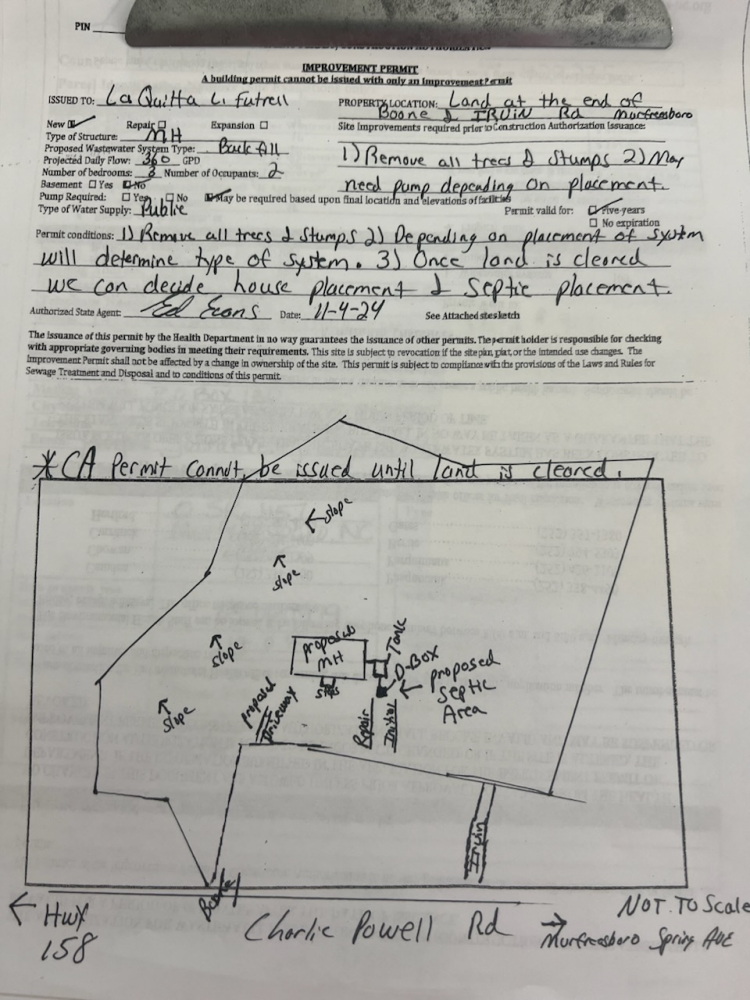 PIN
IMPROVEMENT PERMIT
A building permit cannot be issued with only an Improvement Permit
ISSUED TO: LaQuitta L. Futrell PROPERTY LOCATION: Land at the end of
Boone & IRUIN Rd Murfreesboro
New ☑ Repair ☐ Expansion ☐ Site Improvements required prior to Construction Authorization Issuance:
Type of Structure: MH
Proposed Wastewater System Type:
Projected Daily Flow: 360 GPD 1) Remove all trees & Stumps 2) May
Number of bedrooms: 3 Number of Occupants: 2
Basement ☐ Yes ☑ No need pump depending on placement.
Pump Required: ☐ Yes ☐ No ☑ May be required based upon final location and elevations of facilities
Type of Water Supply: Public Permit valid for: ☑ Five years
☐ No expiration
Permit conditions: 1) Remove all trees & Stumps 2) Depending on placement of system
will determine type of system. 3) Once land is cleared
we can decide house placement & septic placement.
Authorized State Agent: Ed Evans Date: 11-4-24 See Attached site sketch
The issuance of this permit by the Health Department in no way guarantees the issuance of other permits. The permit holder is responsible for checking
with appropriate governing bodies in meeting their requirements. This site is subject to revocation if the site plan, plat, or the intended use changes. The
Improvement Permit shall not be affected by a change in ownership of the site. This permit is subject to compliance with the provisions of the Laws and Rules for
Sewage Treatment and Disposal and to conditions of this permit.
*CA Permit Cannot be issued until land is cleared.
← slope
↑ slope
↑ slope
↑ slope
proposed
MH
Tank
D-BOX
← proposed
septic
Area
proposed
Driveway
Repair
Initial
Irvin
← Hwy
158
Charlie Powell Rd
→
NOT To Scale
Murfreesboro Spring AVE